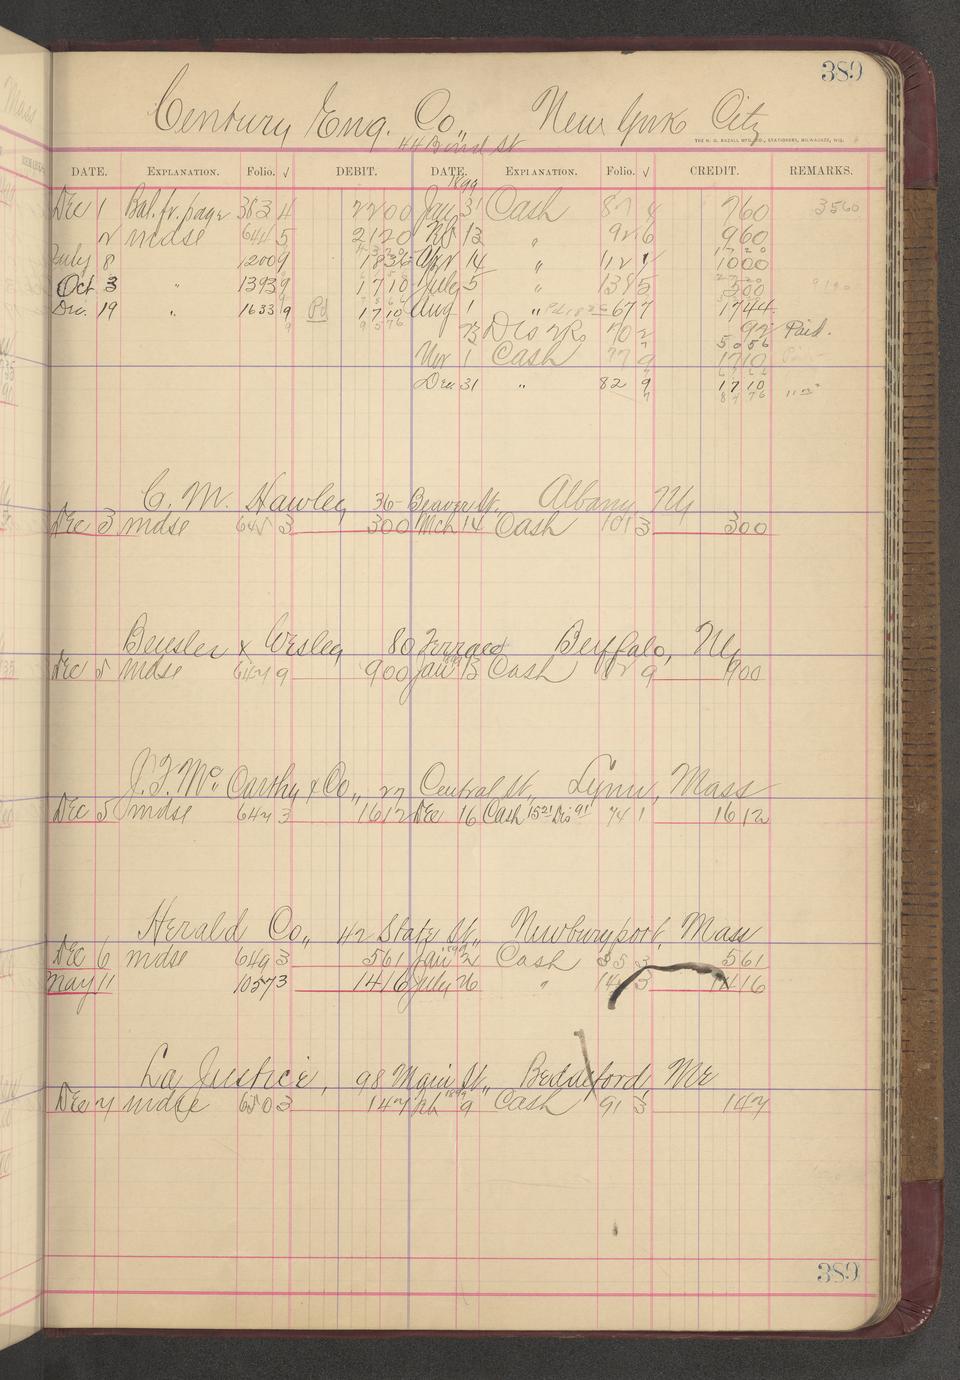 389
Century Eng. Co., New York City
44 Bond St
THE H. G. RAZALL MFG. CO., STATIONERS, MILWAUKEE, WIS.
DATE. EXPLANATION. Folio. √ DEBIT. DATE. EXPLANATION. Folio. √ CREDIT. REMARKS.
1899
Dec 1 Bal. fr. page 383 4 2200 Jan 31 Cash 87 4 760 3560
2 mdse 644 5 2120 Feb 13 " 92 6 960
July 8 1200 9 1836 Apr 14 " 112 1 1000
Oct 3 " 1393 9 1710 July 5 " 138 5 500
Dec. 19 " 1633 9 Pd 1710 Aug 1 " 67 7 1744
9576 23 Dis 70 2 92 Paid.
5056
Nov 1 Cash 77 9 1710
6766
Dec 31 " 82 9 1710
8476
C. M. Hawley 36 Beaver St. Albany Ny
Dec 3 mdse 645 3 300 Mch 14 Cash 101 3 300
Beusler & Wesley 80 Terrace Buffalo, Ny
Dec 5 mdse 647 9 900 Jan 13 Cash 82 9 900
J. F. McCarthy & Co., 27 Central St., Lynn, Mass
Dec 5 mdse 647 3 1612 Dec 16 Cash 1521 Dis 91 74 1 1612
Herald Co., 42 State St., Newburyport, Mass
Dec 6 mdse 649 3 561 Jan 2 Cash 35 3 561
May 11 1057 3 1416 July 26 " 141 3 1416
La Justice, 98 Main St., Beddeford, Me
Dec 7 mdse 650 3 147 Feb 9 Cash 91 3 147
389